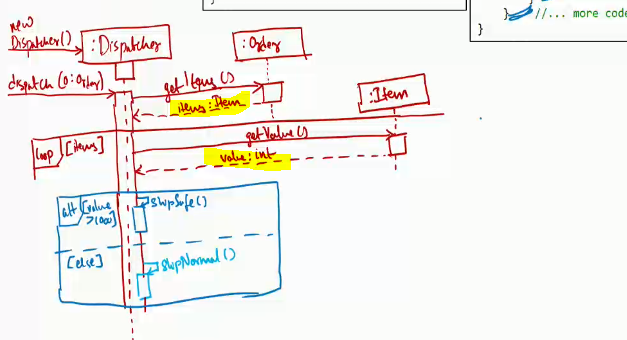 } //... more code
}
new
Dispatcher()
:Dispatcher
:Order
dispatch (o:Order)
getItems()
items:Item
:Item
loop [items]
getValue()
value:int
alt [value
>1000]
shipSafe()
[else]
shipNormal()